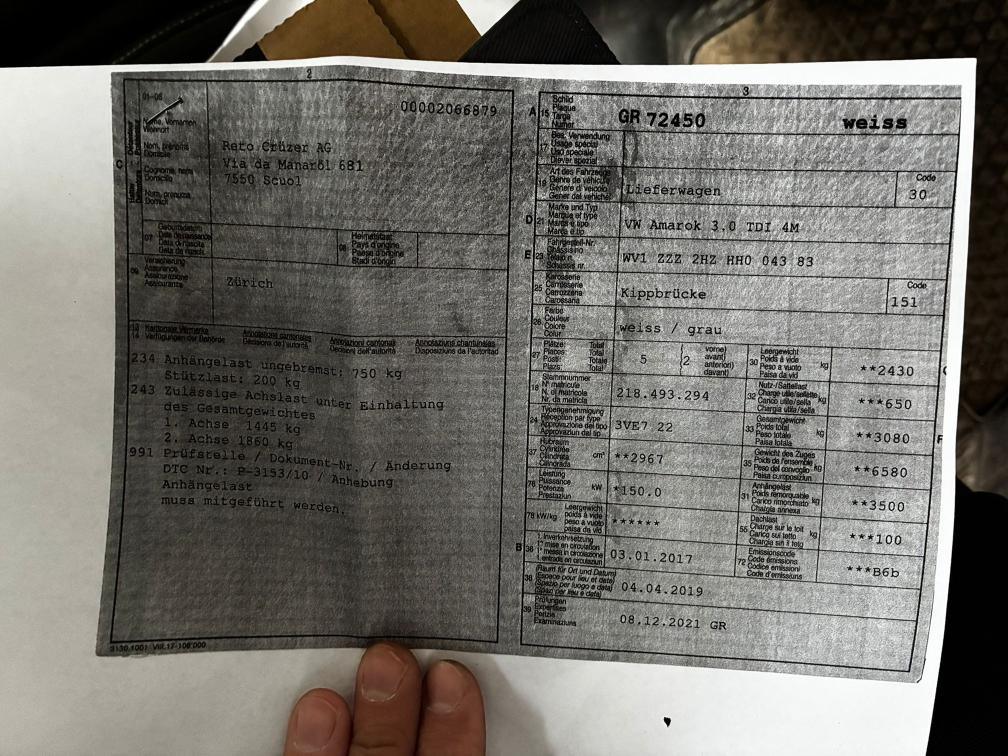 2
01-06
00002066879
Name, Vornamen
Wohnort
Nom, prénoms
Domicile
Cognome, nomi
Domicilio
Num, prenums
Domicil
C
Reto Crüzer AG
Via da Manaröl 681
7550 Scuol
07
Geburtsdatum
Date de naissance
Data di nascita
Data da nasch.
08
Heimatstaat
Pays d'origine
Paese d'origine
Stadi d'origin
09
Versicherung
Assurance
Assicurazione
Assicuranza
Zürich
13
14
Kantonale Vermerke
Verfügungen der Behörde
Annotations cantonales
Décisions de l'autorité
Annotazioni cantonali
Decisioni dell'autorità
Annotaziuns chantunalas
Disposiziuns da l'autoritad
234 Anhängelast ungebremst: 750 kg
Stützlast: 200 kg
243 Zulässige Achslast unter Einhaltung
des Gesamtgewichtes
1. Achse 1445 kg
2. Achse 1860 kg
991 Prüfstelle / Dokument-Nr. / Änderung
DTC Nr.: P-3153/10 / Anhebung
Anhängelast
muss mitgeführt werden.
3
A 15
Schild
Plaque
Targa
Numer
GR 72450 weiss
17
Bes. Verwendung
Usage spécial
Uso speciale
Diever spezial
19
Art des Fahrzeugs
Genre de véhicule
Genere di veicolo
Gener dal vehichel
Lieferwagen
Code
30
D 21
Marke und Typ
Marque et type
Marca e tipo
Marca e tip
VW Amarok 3.0 TDI 4M
E 23
Fahrgestell-Nr.
Châssis no
Telaio n.
Schassis nr.
WV1 ZZZ 2HZ HH0 043 83
25
Karosserie
Carrosserie
Carrozzeria
Carossaria
Kippbrücke
Code
151
26
Farbe
Couleur
Colore
Colur
weiss / grau
27
Plätze: Total
Places: Total
Posti: Totale
Plazs: Total
5
(2
vorne)
avant)
anteriori)
davant)
30
Leergewicht
Poids à vide
Peso a vuoto
Paisa da vid
kg
**2430
18
Stammnummer
N° matricule
N. di matricola
Nr. da matricla
218.493.294
32
Nutz-/Sattellast
Charge utile/sellette
Carico utile/sella
Chargia utila/sella
kg
***650
24
Typengenehmigung
Réception par type
Approvazione del tipo
Approvaziun dal tip
3VE7 22
33
Gesamtgewicht
Poids total
Peso totale
Paisa totala
kg
**3080
37
Hubraum
Cylindrée
Cilindrata
Cilindrada
cm³
**2967
35
Gewicht des Zuges
Poids de l'ensemble
Peso del convoglio
Paisa cumposiziun
kg
**6580
76
Leistung
Puissance
Potenza
Prestaziun
kW
*150.0
31
Anhängelast
Poids remorquable
Carico rimorchiato
Chargia annexa
kg
**3500
78 kW/kg
Leergewicht
poids à vide
peso a vuoto
paisa da vid
******
55
Dachlast
Charge sur le toit
Carico sul tetto
Chargia sin il tetg
kg
***100
B 36
1. Inverkehrsetzung
1re mise en circulation
1a messa in circolazione
1. entrada en circulaziun
03.01.2017
72
Emissionscode
Code émissions
Codice emissioni
Code d'emissiuns
***B6b
38
(Raum für Ort und Datum)
(Espace pour lieu et date)
(Spazio per luogo e data)
(Spazi per lieu e data)
04.04.2019
39
Prüfungen
Expertises
Perizie
Examinaziuns
08.12.2021 GR
3130.1001 VIII.17-100'000